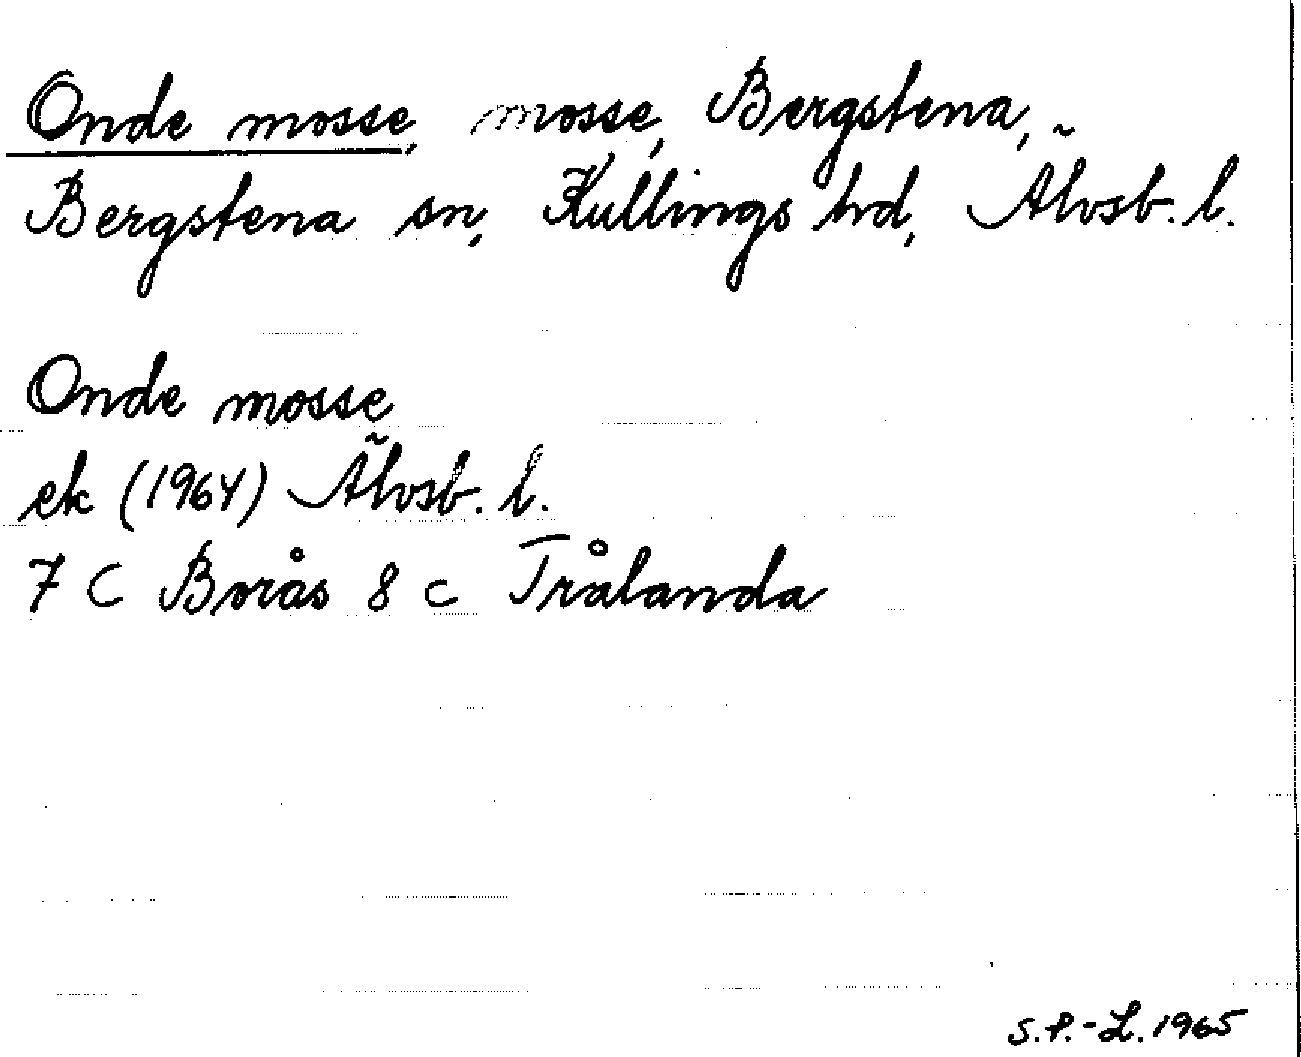 Onde mosse, mosse, Bergstena,
Bergstena sn, Kullings hd, Älvsb. l.
Onde mosse
ek (1964) Älvsb. l.
7 C Borås 8 c Trålanda
S.P.-L. 1965